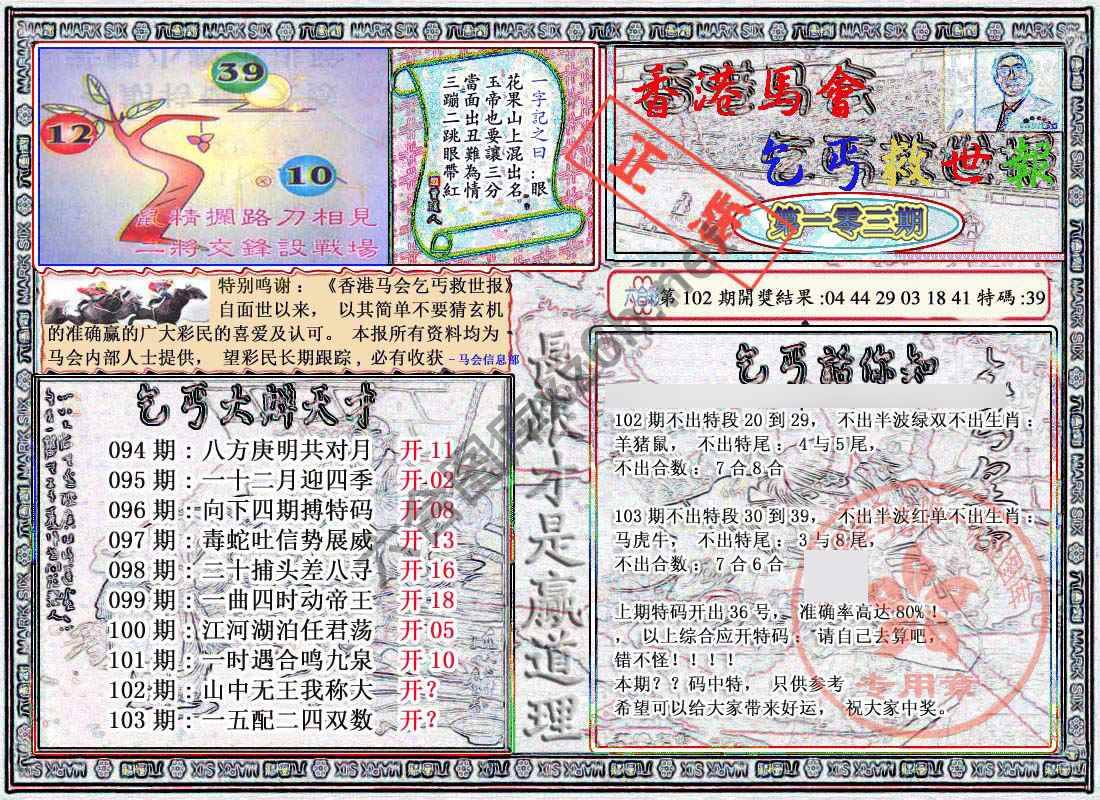 39
12
10
鼠精攔路刀相見
二將交鋒設戰場
一字記之曰:眼
花果山上混出名
玉帝也要讓三分
當面出丑難為情
三蹦二跳眼帶紅
香港馬會
乞丐救世報
第一零三期
正版
特别鸣谢：《香港马会乞丐救世报》
自面世以来， 以其简单不要猜玄机
的准确赢的广大彩民的喜爱及认可。 本报所有资料均为
马会内部人士提供， 望彩民长期跟踪，必有收获 -马会信息部
第 102 期開獎結果 :04 44 29 03 18 41 特碼 :39
乞丐大解天才
094 期：八方庚明共对月 开 11
095 期：一十二月迎四季 开 02
096 期：向下四期搏特码 开 08
097 期：毒蛇吐信势展威 开 13
098 期：三十捕头差八寻 开 16
099 期：一曲四时动帝王 开 18
100 期：江河湖泊任君荡 开 05
101 期：一时遇合鸣九泉 开 10
102 期：山中无王我称大 开?
103 期：一五配二四双数 开?
長跟才是贏道理
乞丐話你知
102 期不出特段 20 到 29， 不出半波绿双不出生肖：
羊猪鼠， 不出特尾： 4 与 5 尾，
不出合数： 7 合 8 合
103 期不出特段 30 到 39， 不出半波红单不出生肖：
马虎牛， 不出特尾： 3 与 8 尾，
不出合数： 7 合 6 合
上期特码开出 36 号， 准确率高达 80%！
，以上综合应开特码： 请自己去算吧，
错不怪！！！！
本期？？码中特， 只供参考
希望可以给大家带来好运， 祝大家中奖。
专用章
MARK SIX 六合彩